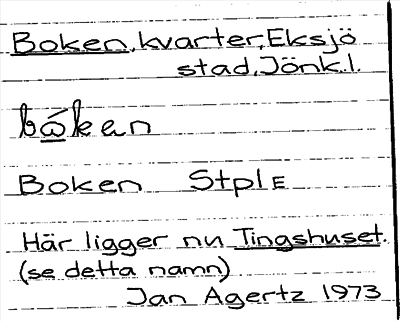 Boken, kvarter, Eksjö
stad, Jönk.l.
bó̲ken
Boken StplE
Här ligger nu Tingshuset.
(se detta namn)
Jan Agertz 1973